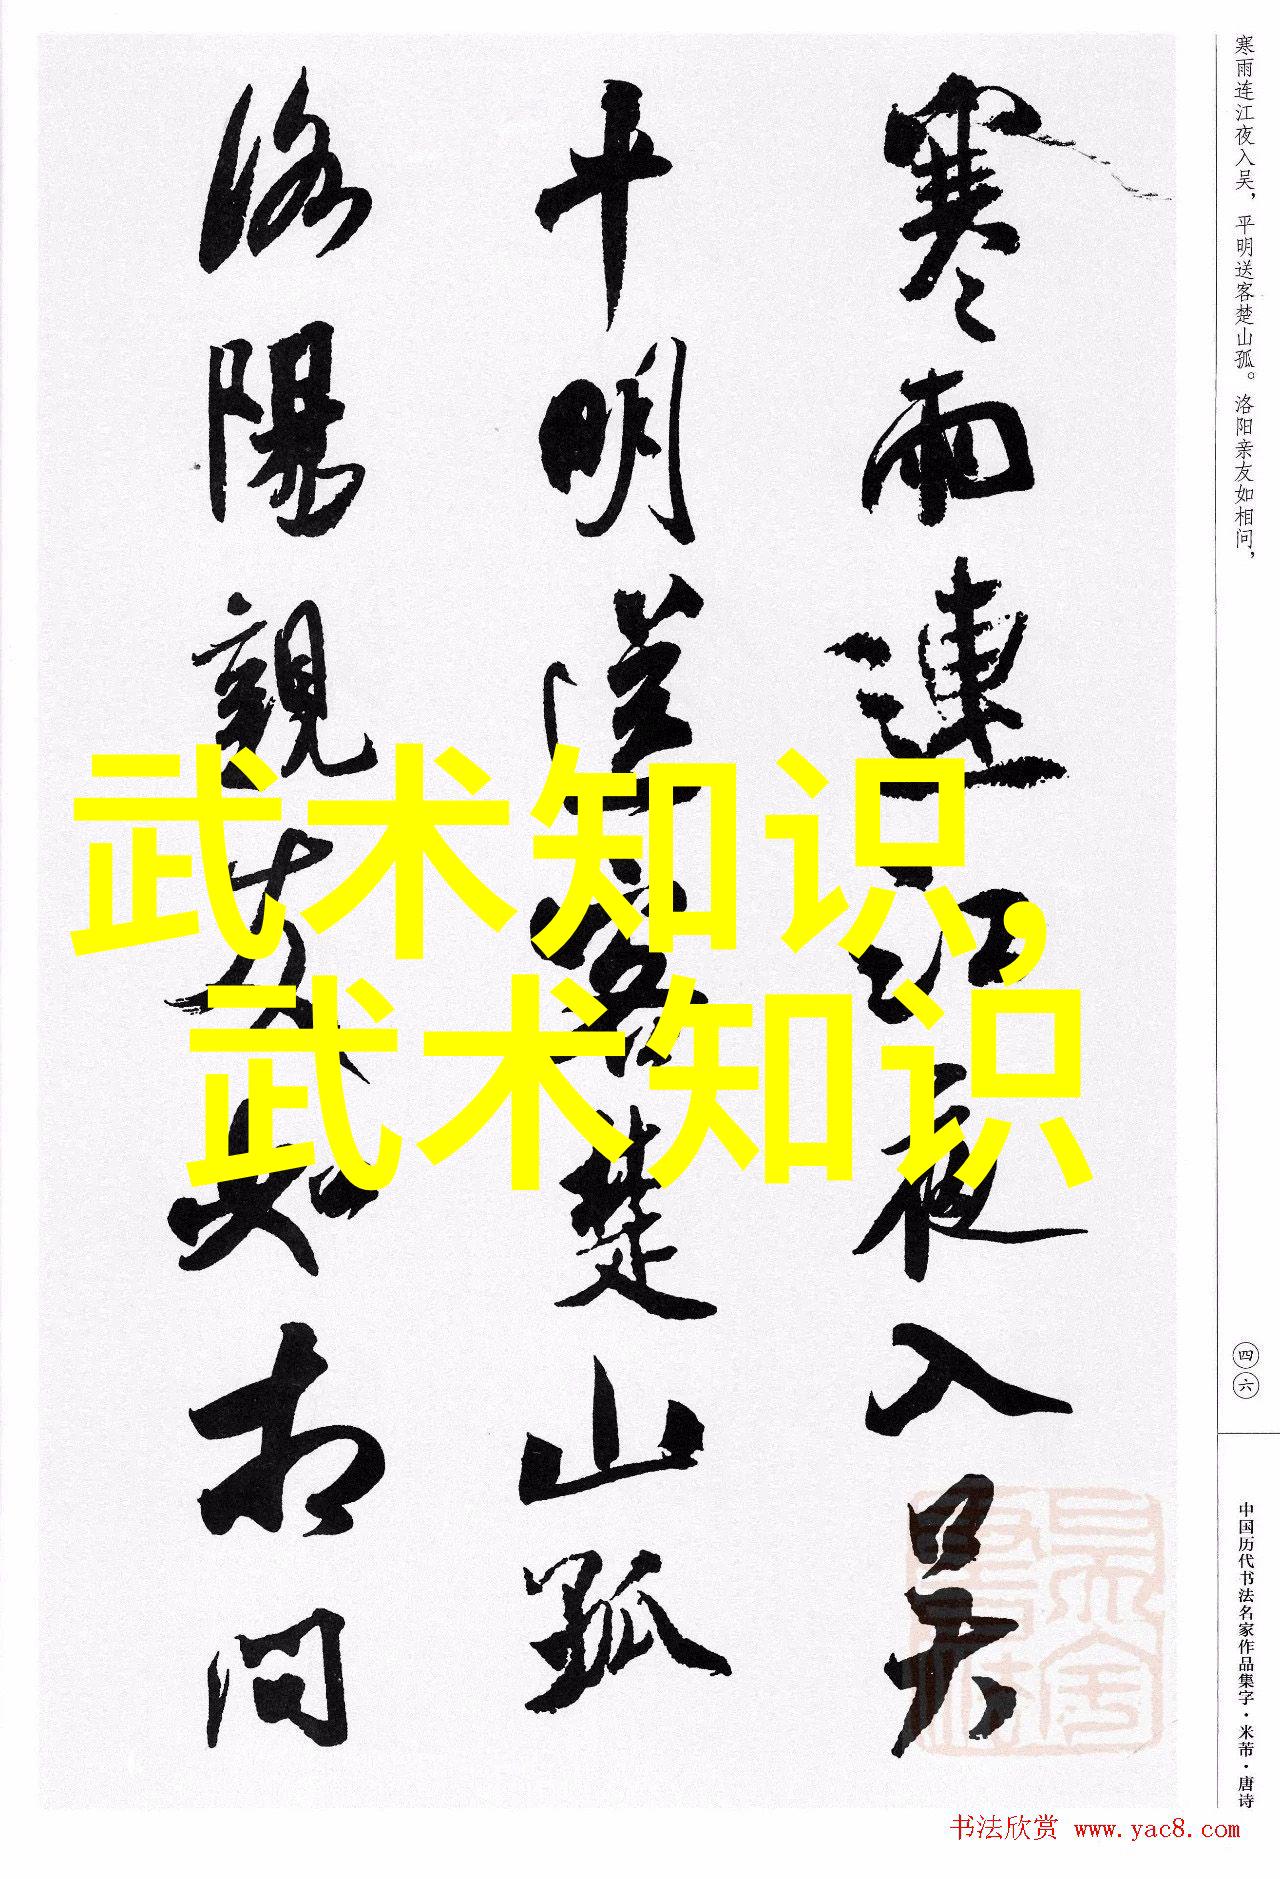 寒雨连江夜入吴，平明送客楚山孤。洛阳亲友如相问，
四六
中国历代书法名家作品集字·米芾·唐诗
寒雨連江夜入吴
平明送客楚山孤
洛陽親友如相問
武术知识,
武术知识
书法欣赏 www.yac8.com